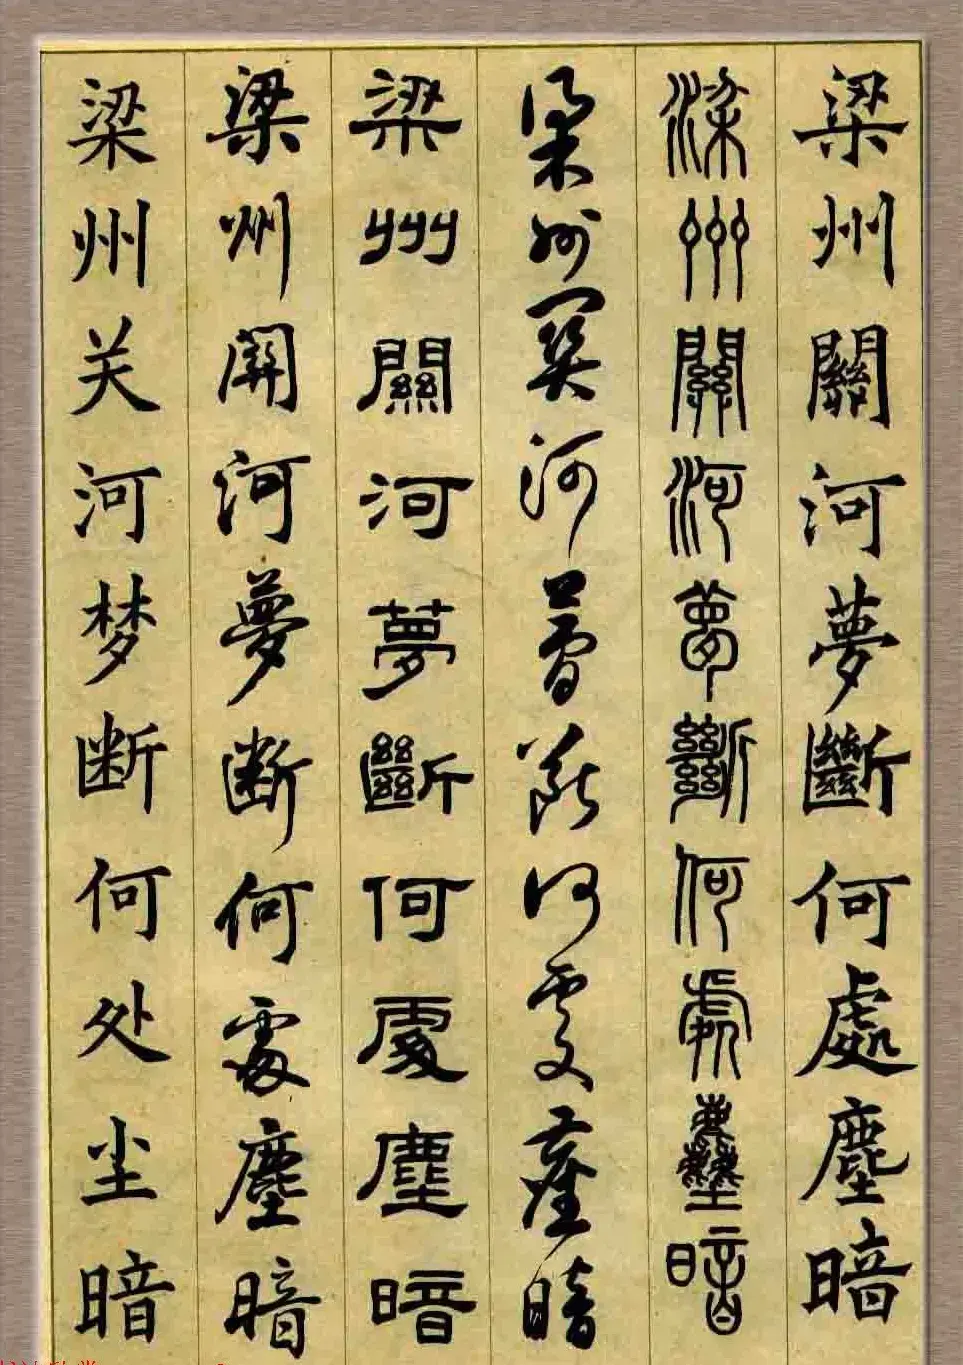 梁州關河夢斷何處塵暗
梁州關河夢斷何處塵暗
梁州關河夢斷何處塵暗
梁州關河夢斷何處塵暗
梁州関河夢断何處塵暗
梁州关河梦断何处尘暗